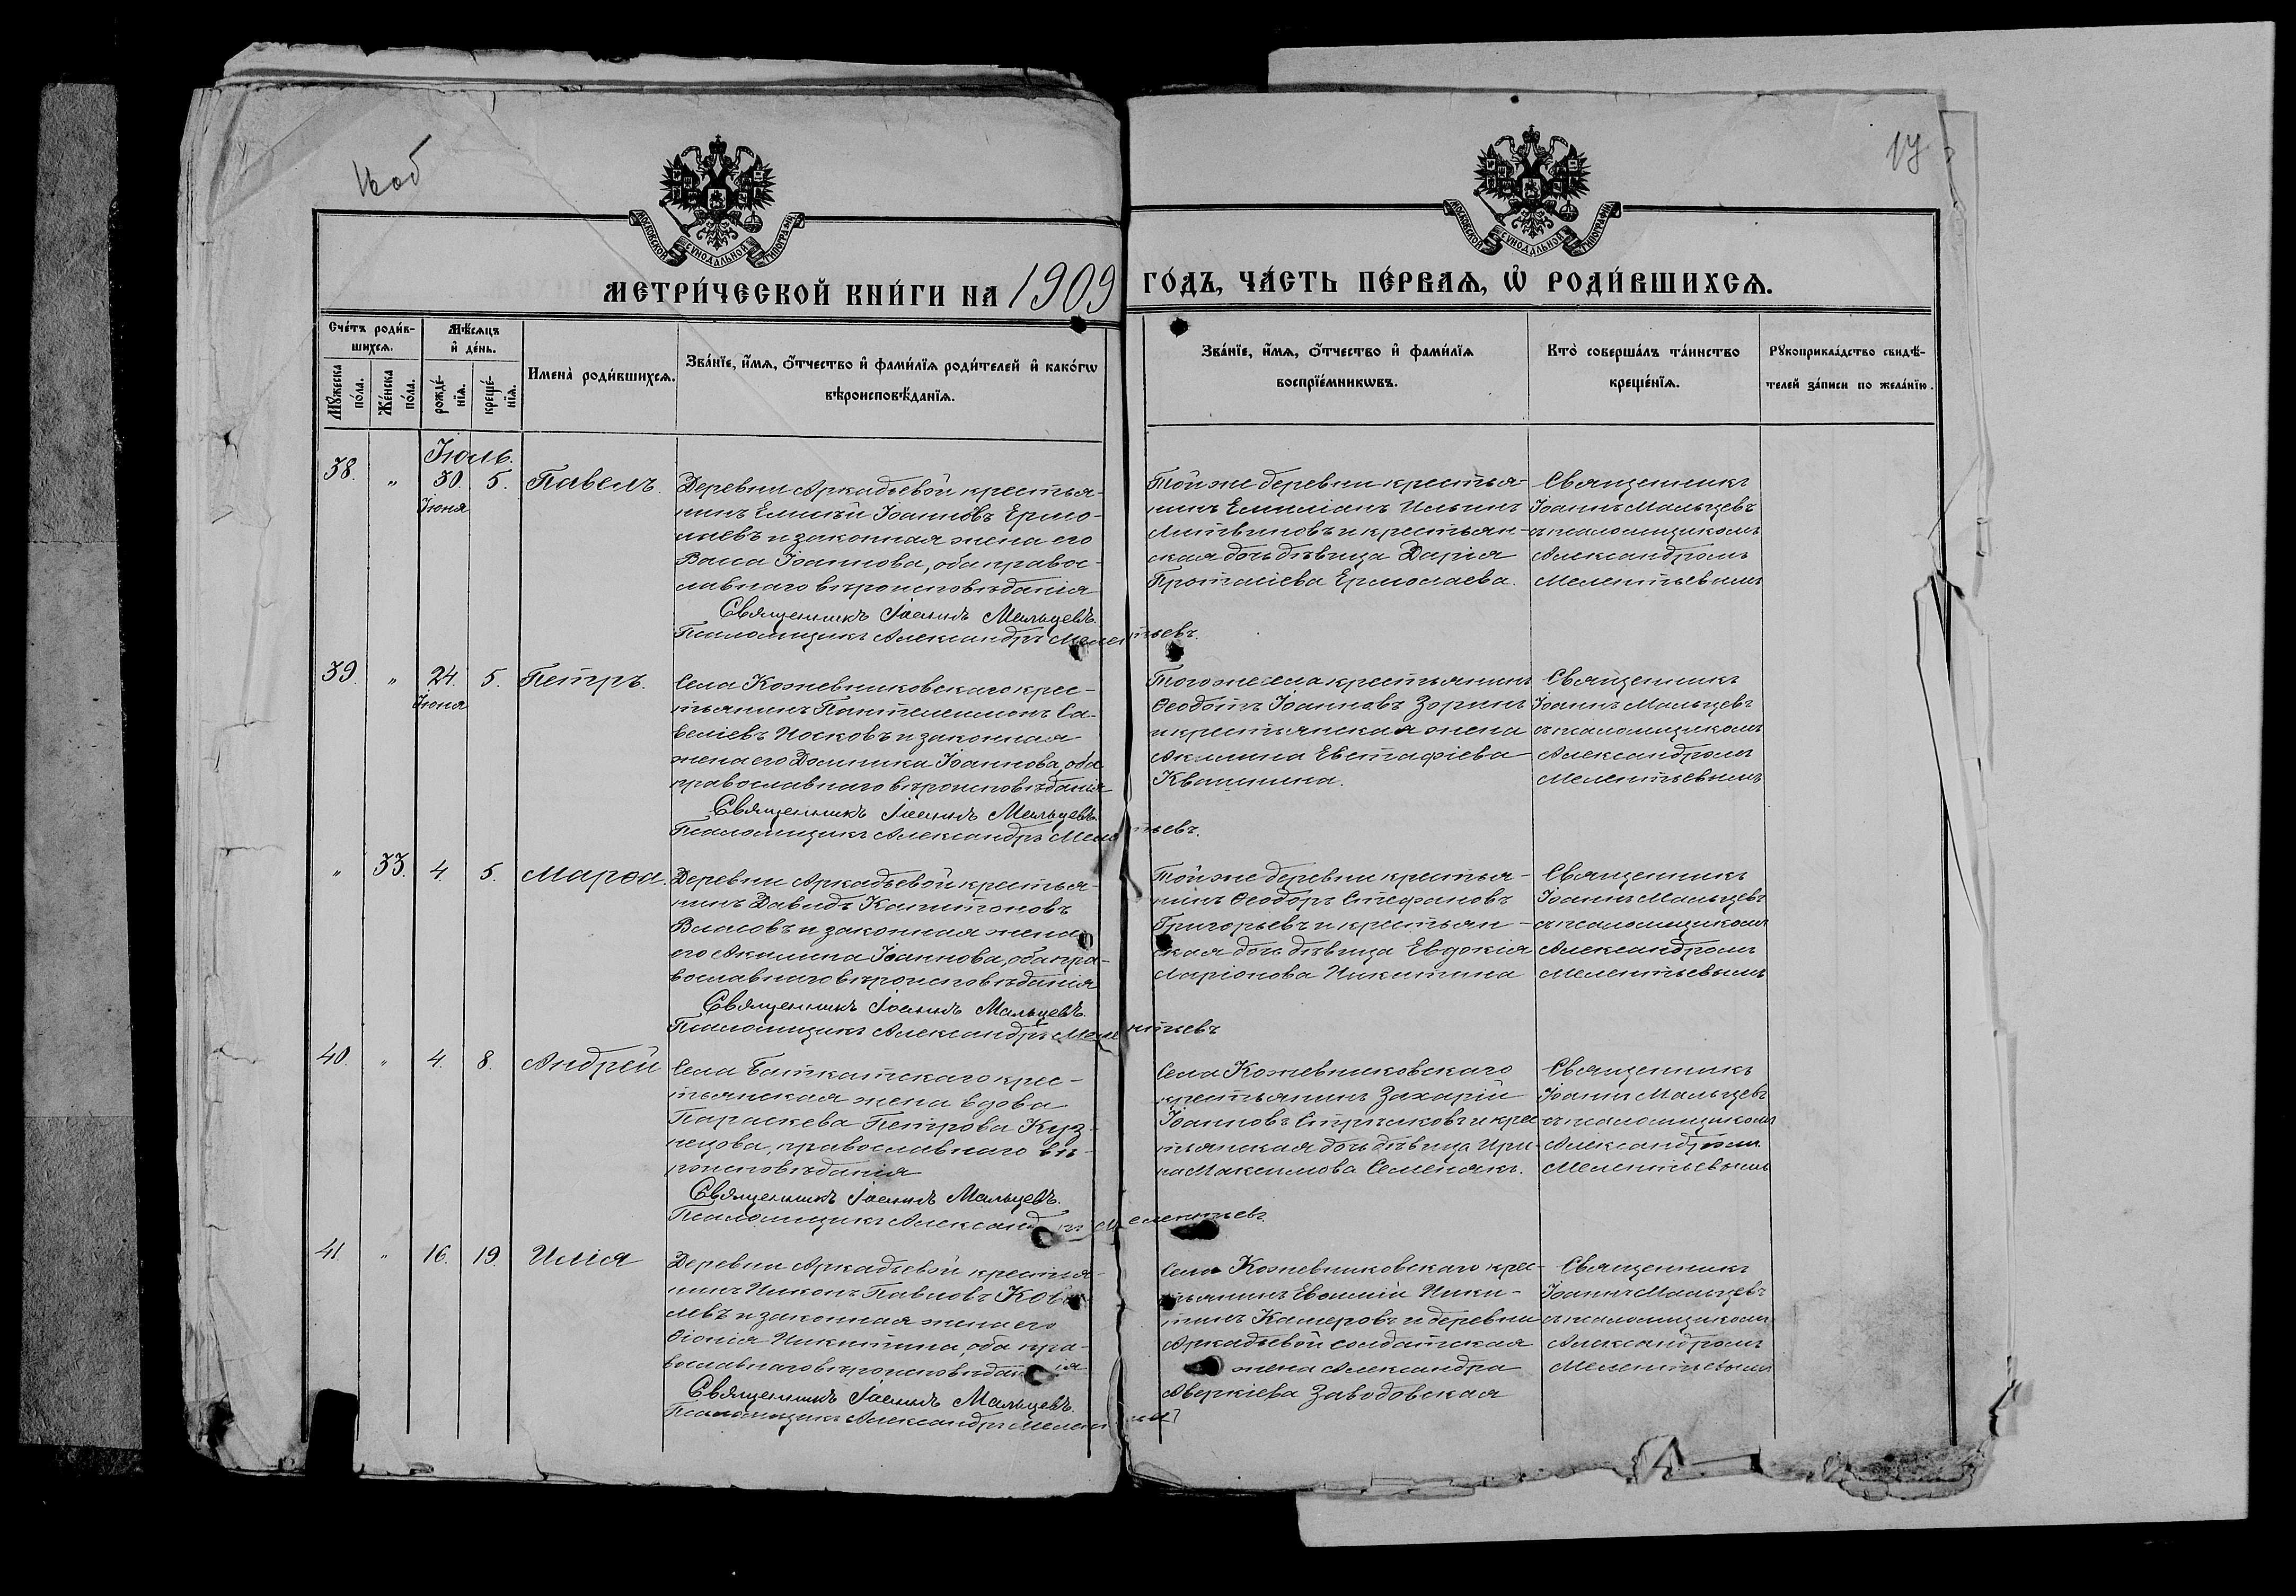 16об
17
МОСКОВСКОЙ СѴНОДАЛЬНОЙ ТИПОГРАФІИ
МОСКОВСКОЙ СѴНОДАЛЬНОЙ ТИПОГРАФІИ
МЕТРИ́ЧЕСКОЙ КНИ́ГИ НА 1909 ГО́ДЪ, ЧА́СТЬ ПЕ́РВАѦ, Ѽ РОДИ́ВШИХСѦ.
Сче́тъ роди́в-
шихсѧ.
Мꙋ́жеска по́ла.
Же́нска по́ла.
Мѣ́сѧцъ
и҆ де́нь.
рожде́-
нїѧ.
креще́-
нїѧ.
Имена̀ роди́вшихсѧ.
Зва́нїе, и҆́мѧ, ѻ҆́тчество и҆ фами́лїѧ роди́телей и҆ како́гѡ
вѣроисповѣ́данїѧ.
Зва́нїе, и҆́мѧ, ѻ҆́тчество и҆ фами́лїѧ
воспрїе́мникѡвъ.
Кто̀ соверша́лъ та́инство
креще́нїѧ.
Рꙋкоприкла́дство свидѣ́-
телей за́писи по жела́нїю.
Іюль.
38. " 30. 5. Павелъ.
Іюня
Деревни Аркадьевой крестья-
нинъ Емилій Іоанновъ Ермо-
лаевъ и законная жена его
Васса Іоаннова, оба правос-
лавнаго вѣроисповѣданія
Священникъ Іоаннъ Мальцевъ.
Псаломщикъ Александръ Мелентьевъ.
Той же деревни крестья-
нинъ Емиліанъ Ильинъ
Литвиновъ и крестьян-
ская дочь дѣвица Дарія
Протасіева Ермолаева.
Священникъ
Іоаннъ Мальцевъ
съ псаломщикомъ
Александромъ
Мелентьевымъ
39. " 24. 5. Петръ.
Іюня
Села Кожевниковскаго крес-
тьянинъ Пантелеимонъ Са-
веліевъ Носковъ и законная
жена его Домника Іоаннова, оба
православнаго вѣроисповѣданія
Священникъ Іоаннъ Мальцевъ.
Псаломщикъ Александръ Мелентьевъ.
Того же села крестьянинъ
Ѳеодотъ Іоанновъ Зоринъ
и крестьянская жена
Акилина Евстафіева
Квашнина.
Священникъ
Іоаннъ Мальцевъ
съ псаломщикомъ
Александромъ
Мелентьевымъ
" 33. 4. 5. Марѳа.
Деревни Аркадьевой крестья-
нинъ Давидъ Капитоновъ
Власовъ и законная жена
его Акилина Іоаннова, оба пра-
вославнаго вѣроисповѣданія
Священникъ Іоаннъ Мальцевъ.
Псаломщикъ Александръ Мелентьевъ
Той же деревни крестья-
нинъ Ѳеодоръ Стефановъ
Григорьевъ и крестьян-
ская дочь дѣвица Евдокія
Ларіонова Никитина
Священникъ
Іоаннъ Мальцевъ
съ псаломщикомъ
Александромъ
Мелентьевымъ
40. " 4. 8. Андрей
Села Баткатскаго крес-
тьянская жена вдова
Параскева Петрова Куз-
нецова, православнаго вѣ-
роисповѣданія
Священникъ Іоаннъ Мальцевъ.
Псаломщикъ Александръ Мелентьевъ.
Села Кожевниковскаго
крестьянинъ Захарій
Іоанновъ Стрѣлковъ и крес-
тьянская дочь дѣвица Ири-
на Максимова Семенякъ.
Священникъ
Іоаннъ Мальцевъ
съ псаломщикомъ
Александромъ
Мелентьевымъ
41. " 16. 19. Илія
Деревни Аркадьевой крестья-
нинъ Никонъ Павловъ Кова-
левъ и законная жена его
Ѳіонія Никитина, оба пра-
вославнаго вѣроисповѣданія
Священникъ Іоаннъ Мальцевъ.
Псаломщикъ Александръ Мелентьевъ
Села Кожевниковскаго крес-
тьянинъ Евѳимій Ники-
тинъ Камеровъ и деревни
Аркадьевой солдатская
жена Александра
Аверкіева Заводовская
Священникъ
Іоаннъ Мальцевъ
съ псаломщикомъ
Александромъ
Мелентьевымъ